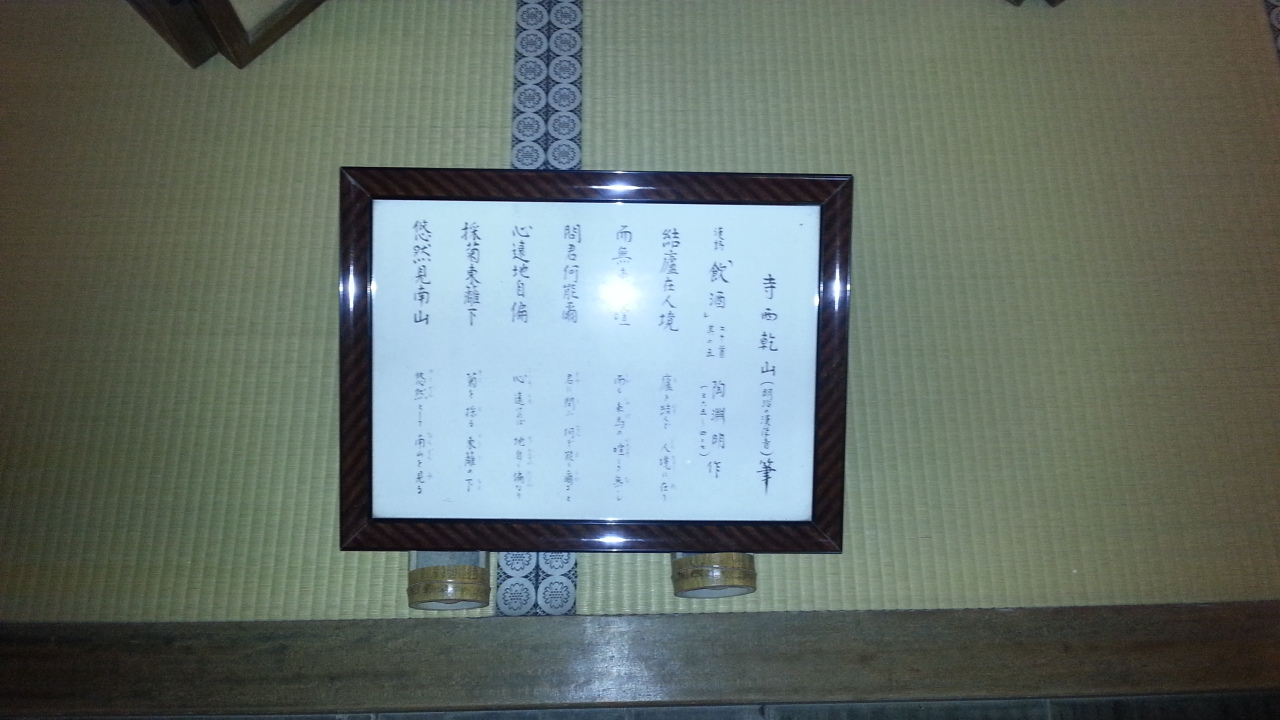 寺西乾山(明治の漢学者)筆
漢詩「飲酒」二十首 其の五 陶淵明作(三六五―四二七)
結廬在人境 廬を結んで 人境に在り
而無 喧 而も 車馬の 喧しき 無し
問君何能爾 君に問ふ 何ぞ能く爾ると
心遠地自偏 心 遠ければ 地自ら偏なり
採菊東籬下 菊を採る 東籬の下
悠然見南山 悠然として 南山を見る